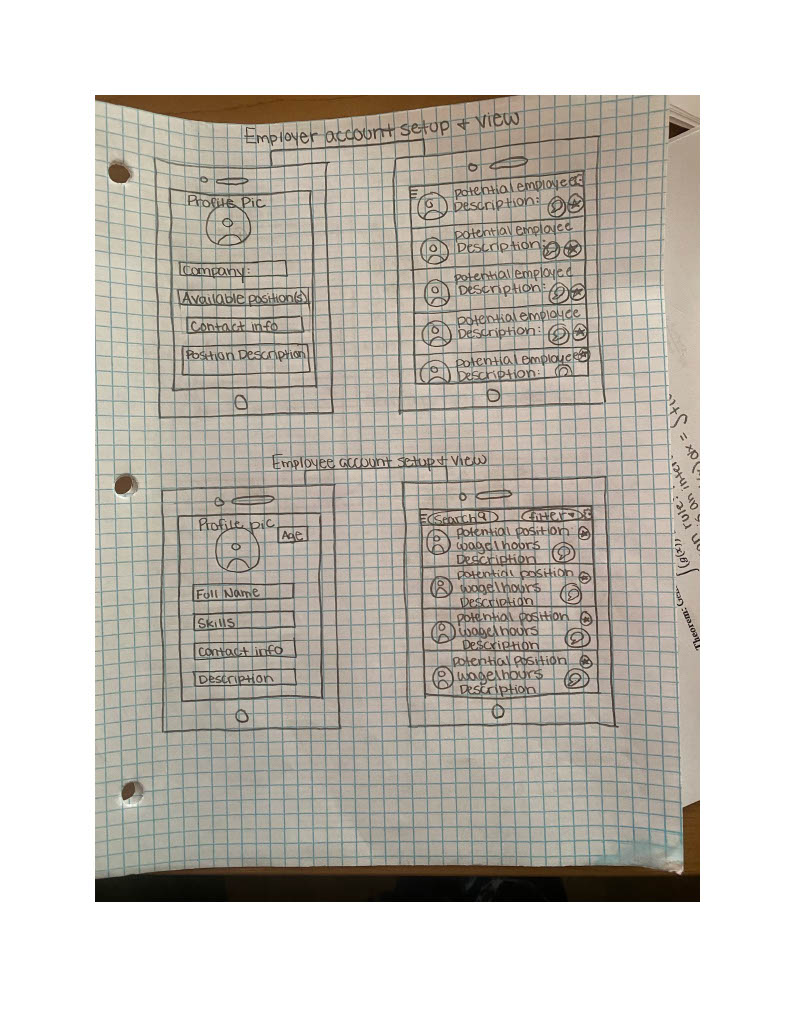 Employer account setup + view
Profile Pic
Company:
Available position(s)
Contact info
Position Description
potential employee
Description:
potential employee
Description:
potential employee
Description:
potential employee
Description:
potential employee
Description:
Employee account setup + view
Profile pic
Age
Full Name
Skills
contact info
Description
Search
filter
potential position
wage/hours
Description
potential position
wage/hours
Description
potential position
wage/hours
Description
potential position
wage/hours
Description
Theorem:
rule: